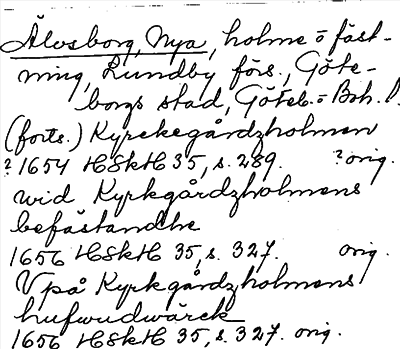 Älvsborg, Nya, holme o fäst-
ning, Lundby förs., Göte-
borgs stad, Göteb. o Boh. l.
(forts.) Kyrckegårdzholmen
? 1654 HSkH 35, s. 289. ? orig.
wid Kyrkgårdzholmens
befästandhe
1656 HSkH 35, s. 327. orig.
Vpå Kyrkgårdzholmens
hufwudwärck
1656 HSkH 35, s. 327. orig.